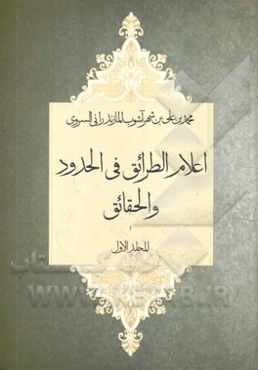 محمد بن علی بن شهر آشوب المازندرانی السروی
اعلام الطرائق فی الحدود
والحقائق
المجلد الاول